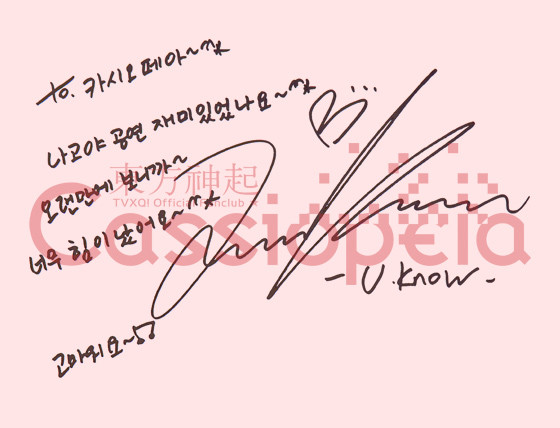 to. 카시오페아~^^*
나고야 공연 재미있었나요~^^*
오랜만에 보니까~
너무 힘이 났어요~^^*
고마워요~♫
- U.Know -
東方神起
TVXQ! Official Fanclub ★
Cassiopeia